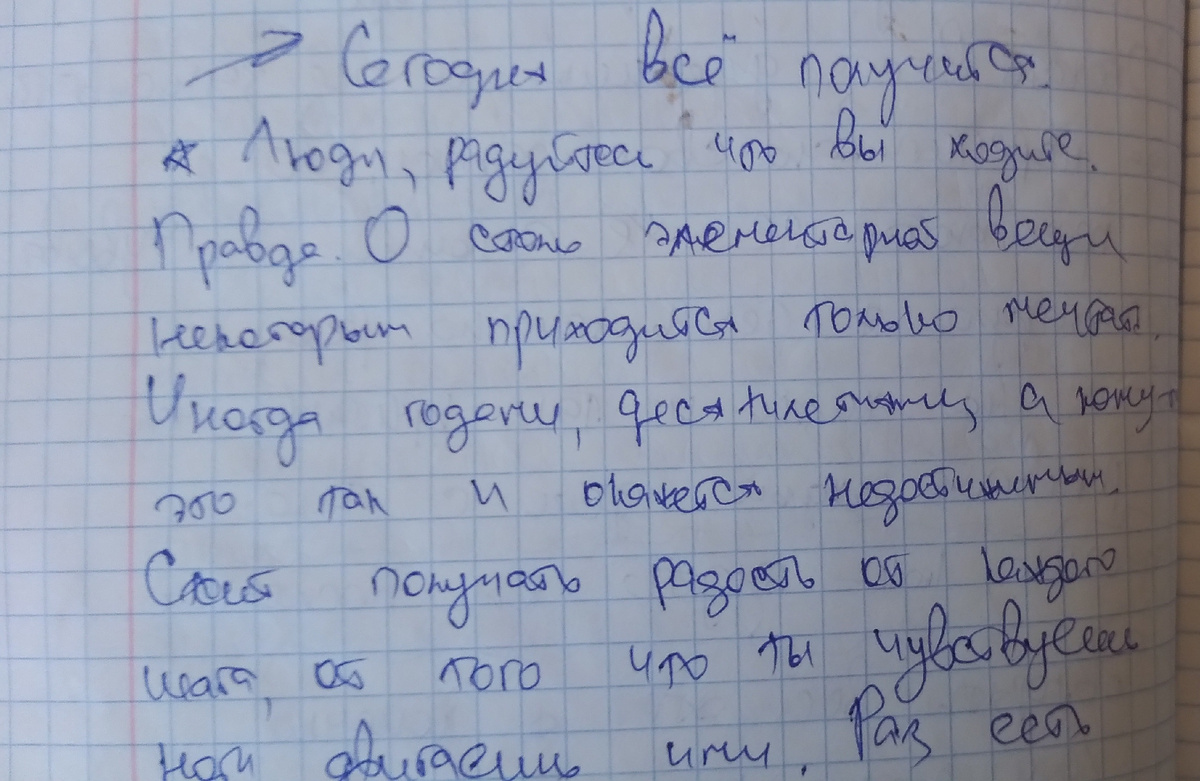 → Сегодня всё получится.
☆ Люди, радуйтесь что вы ходите.
Правда. О столь элементарной вещи
некоторым приходится только мечтать.
Иногда годами, десятилетиями, а кому-т
это так и окажется недостижимым.
Стоит получать радость от каждого
шага, от того что ты чувствуешь
ноги двигаешь ими. Раз есть